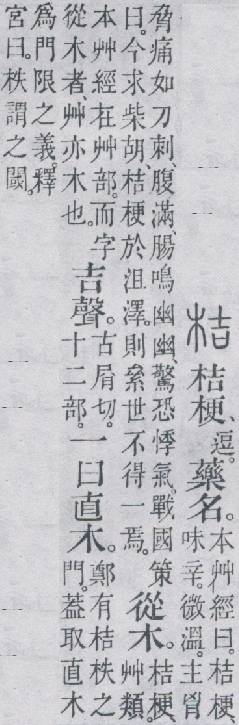 桔 桔梗、逗。藥名。本艸經曰。桔梗味辛。微溫。主胷
脅痛如刀刺、腹滿、腸鳴幽幽、驚恐悸氣。戰國策曰。今求柴胡、桔梗於沮澤。則絫世不得一焉。從木。桔梗艸類。
本艸經在艸部。而字從木者、艸亦木也。吉聲。古屑切。十二部。一曰直木。鄭有桔柣之門。蓋取直木
爲門限之義。釋宮曰。柣謂之閾。